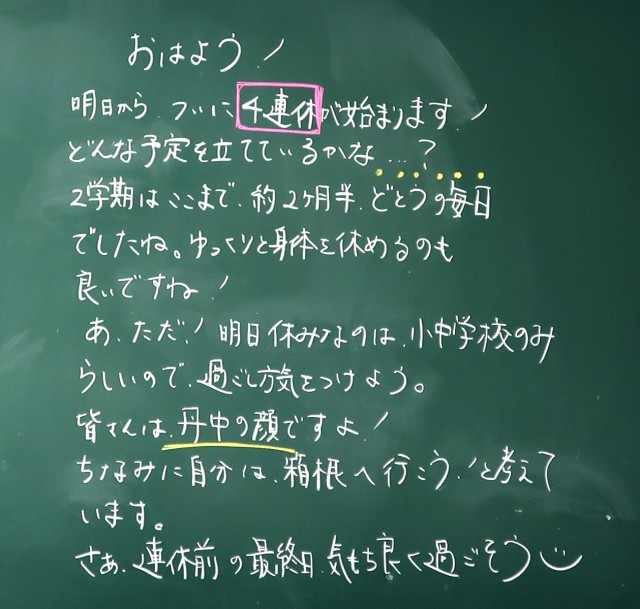 おはよう!
明日から、ついに4連休が始まります!
どんな予定を立てているかな…?
2学期はここまで、約2ヶ月半、どとうの毎日
でしたね。ゆっくりと身体を休めるのも
良いですね!
あ、ただ!明日休みなのは、小中学校のみ
らしいので、過ごし方気をつけよう。
皆さんは、丹中の顔ですよ!
ちなみに自分は、箱根へ行こう!と考えて
います。
さぁ、連休前の最終日、気もち良く過ごそう